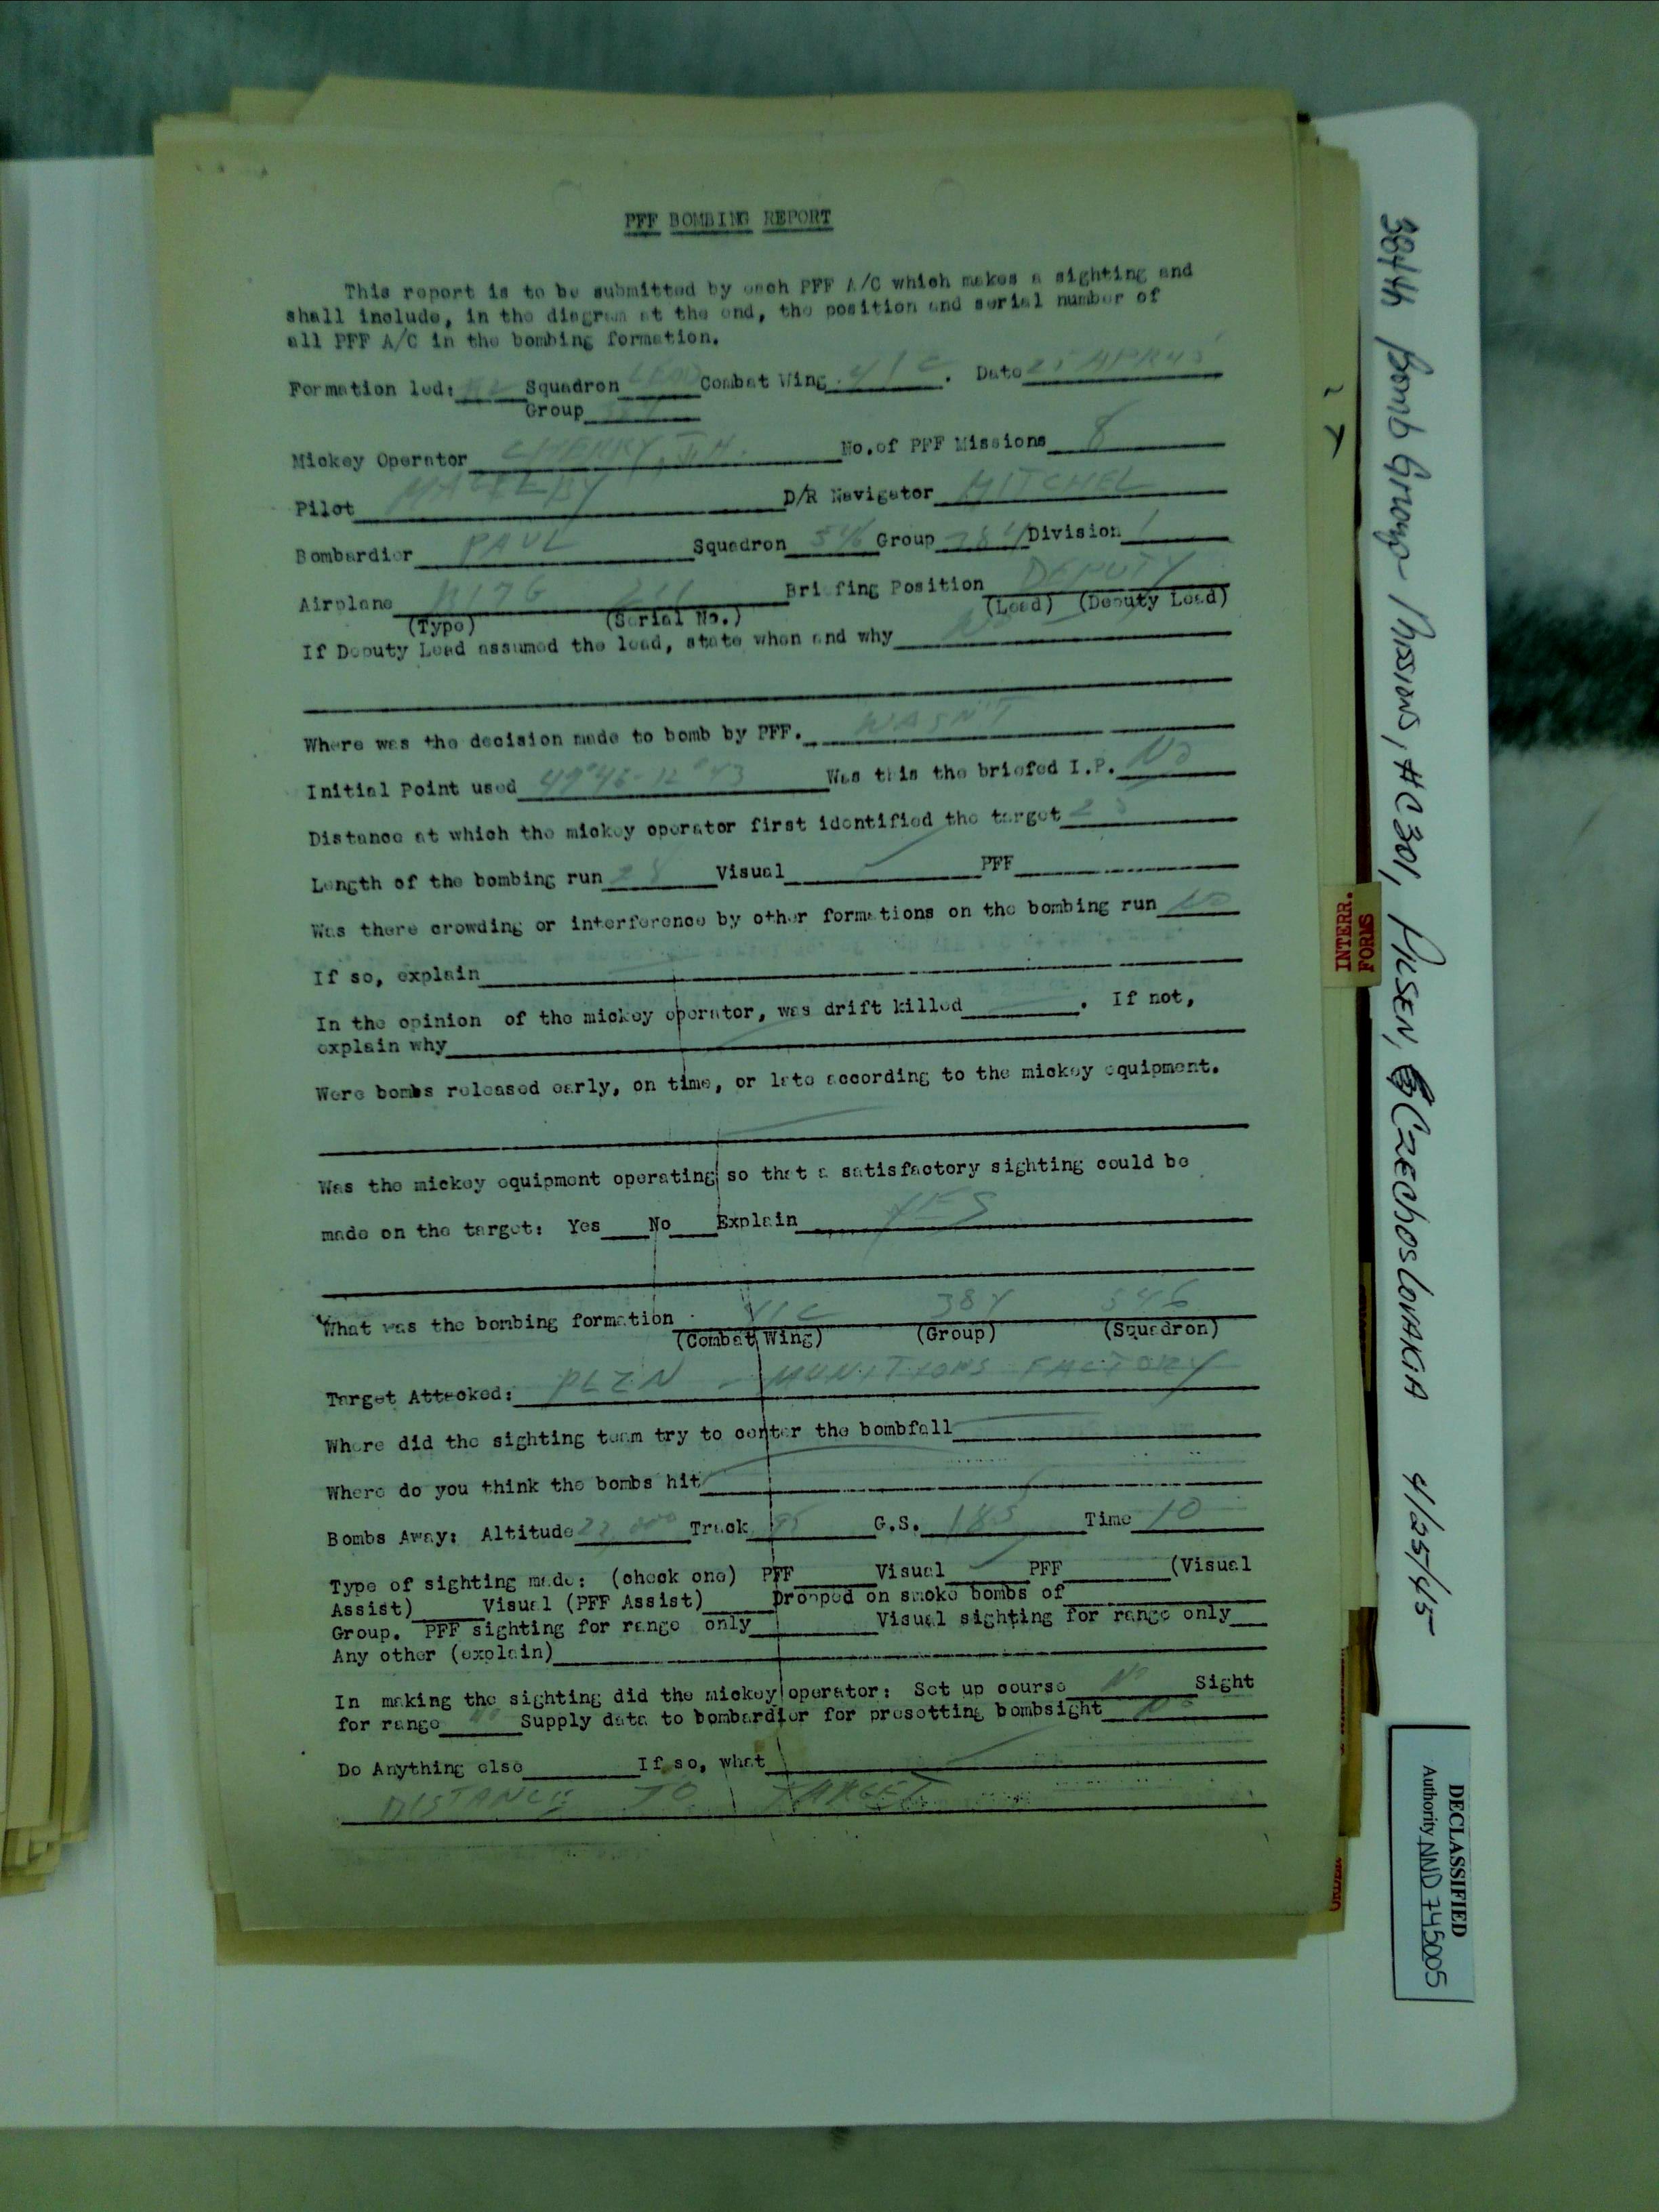 PFF BOMBING REPORT
This report is to be submitted by each PFF A/C which makes a sighting and
shall include, in the diagram at the end, the position and serial number of
all PFF A/C in the bombing formation.
Formation led: Squadron LEAD Combat Wing 41 C. Date 25 APR 45
Group 384
Mickey Operator CHERRY, J.H. No.of PFF Missions 8
Pilot D/R Navigator MITCHEL
Bombardier PAUL Squadron 546 Group 384 Division 1
Airplane B17G Briefing Position DEPUTY
(Type) (Serial No.) (Lead) (Deputy Lead)
If Deputy Lead assumed the lead, state when and why
Where was the decision made to bomb by PFF. WASN'T
Initial Point used 49°46-12°43 Was this the briefed I.P. No
Distance at which the mickey operator first identified the target
Length of the bombing run 28 Visual ✓ PFF
Was there crowding or interference by other formations on the bombing run No
If so, explain
In the opinion of the mickey operator, was drift killed . If not,
explain why
Were bombs released early, on time, or late according to the mickey equipment.
Was the mickey equipment operating so that a satisfactory sighting could be
made on the target: Yes No Explain YES
What was the bombing formation 41C 384 546
(Combat Wing) (Group) (Squadron)
Target Attacked: PLZN - MUNITIONS FACTORY
Where did the sighting team try to center the bombfall
Where do you think the bombs hit
Bombs Away: Altitude 22,000 Track G.S. 185 Time 10
Type of sighting made: (check one) PFF Visual ✓ PFF (Visual
Assist) Visual (PFF Assist) Dropped on smoke bombs of
Group. PFF sighting for range only Visual sighting for range only
Any other (explain)
In making the sighting did the mickey operator: Set up course No Sight
for range No Supply data to bombardier for presetting bombsight No
Do Anything else If so, what
DISTANCE TO TARGET
INTERR.
FORMS
384th Bomb Group Missions, #C301, PILSEN, CZEChOSLOVAKIA 4/25/45
DECLASSIFIED
Authority NND 745005